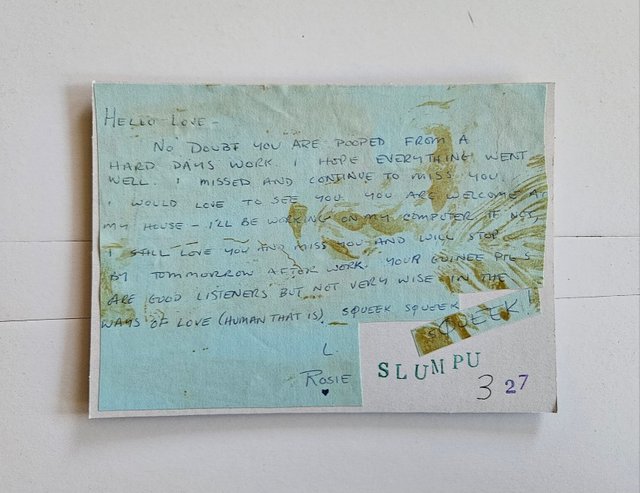 HELLO LOVE -
NO DOUBT YOU ARE POOPED FROM A
HARD DAYS WORK. I HOPE EVERYTHING WENT
WELL. I MISSED AND CONTINUE TO MISS YOU.
I WOULD LOVE TO SEE YOU. YOU ARE WELCOME AT
MY HOUSE - I'LL BE WORKING ON MY COMPUTER. IF NOT,
I STILL LOVE YOU AND MISS YOU AND WILL STOP
BY TOMMORROW AFTER WORK. YOUR GUINEE PIGS
ARE GOOD LISTENERS BUT NOT VERY WISE IN THE
WAYS OF LOVE (HUMAN THAT IS). SQUEEK SQUEEK
SQUEEK!
L.
ROSIE
♥
SLUMPU
3 27